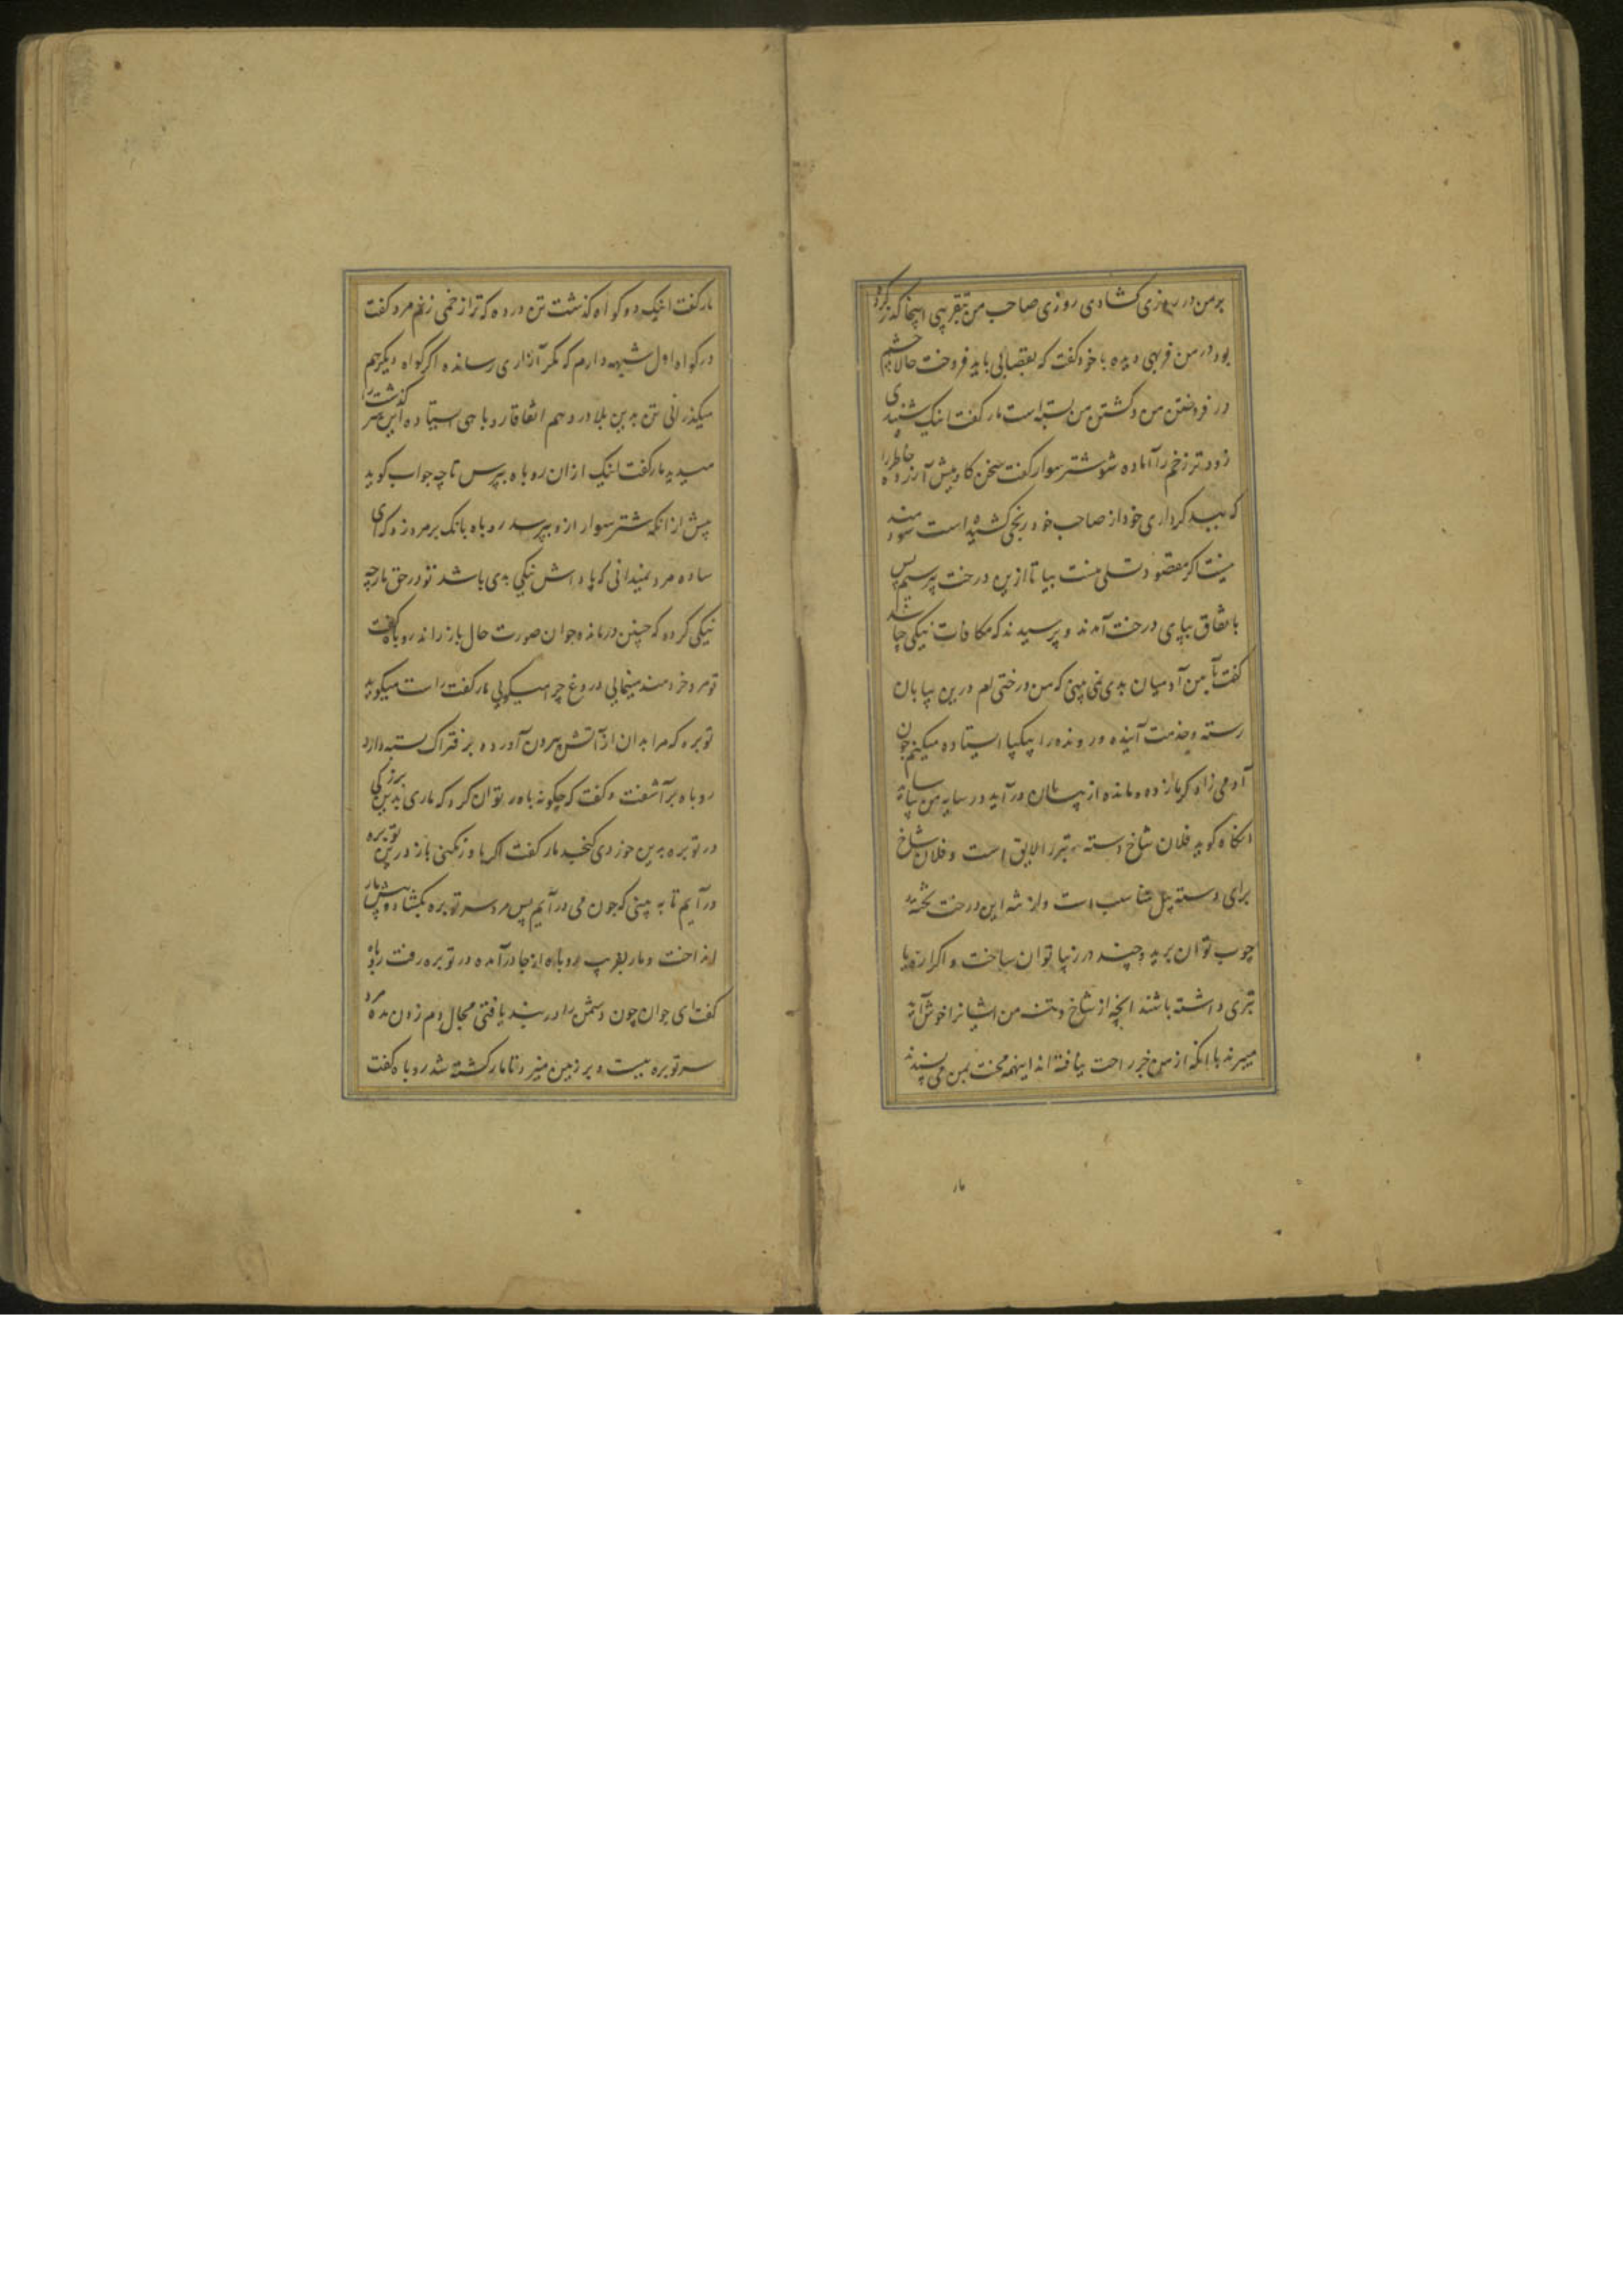 برمن در روزی کشادی روزی صاحب من بتقریبی اینجا گذر کرد
بود در من فربهی دیده با خود گفت که بقصابی باید فروخت حالا چشم
در فروختن من و کشتن من بسته است مار گفت اینک شنیدی
زودتر زخم را آماده شو شتر سوار گفت سخن کاو پیش آزرده خاطر را
که ببد کرداری خود از صاحب خود رنجی کشیده است سودمند
نیست اکر مقصود تسلی منست بیا تا ازین درخت پرسیم پس
باتفاق بپای درخت آمدند و پرسیدند که مکافات نیکی چا باشد
گفت آیین آدمیان بدی نمی بینی که من درختی ام درین بیابان
رسته و بخدمت آینده و رونده را بیکپا ایستاده میکنم چون
آدمی زاد کرمازده و مانده از بیابان درآید در سایه من بیاساید
انکاه کوید فلان شاخ دسته تبر را لایق است و فلان شاخ
برای دسته بیل مناسب است و از تنه این درخت تخته
چوب توان برید و چند در زیبا توان ساخت و اکر اره یا
تبری داشته باشند انچه از شاخ و تنه من ایشانرا خوش آید
میبرند با انکه از من خبر راحت یافته اند اینهمه محنت بمن می پسندند
مار
مار کفت اینک دو کواه کذشت تن در ده که ترا زخمی زنم مرد کفت
در کواه اول شبهه دارم که مکر آزاری رسانده اکر کواه دیکر هم
میکذرانی تن بدین بلا در دهم اتفاقا روباهی ایستاده این سرکذشت را
میدید مار کفت اینک ازان روباه بپرس تا چه جواب کوید
پیش از انکه شتر سوار ازو بپرسد روباه بانک بر مرد زد که ای
ساده مرد نمیدانی که پاداش نیکی بدی باشد تو در حق مار چه
نیکی کرده که چنین درمانده جوان صورت حال باز راند روباه کفت
تو مرد خردمند مینمایی دروغ چرا میکویی مار کفت راست میکوید
توبره که مرا بدان از آتش بیرون آورده بر فتراک بسته دارد
روباه برآشفت و کفت که چکونه باور توان کرد که ماری بدین بزرکی
در توبره بدین خوردی کنجد مار کفت اکر باور نکنی باز درین توبره
درآیم تا به بینی که چون می درآیم پس مرد سر توبره بکشاد و پیش مار
انداخت و مار بفریب روباه از جا درآمده در توبره رفت روباه
کفت ای جوان چون دشمن را در بند یافتی مجال دم زدن مده مرد
سر توبره ببست و بر زمین میزد تا مار کشته شد روباه کفت